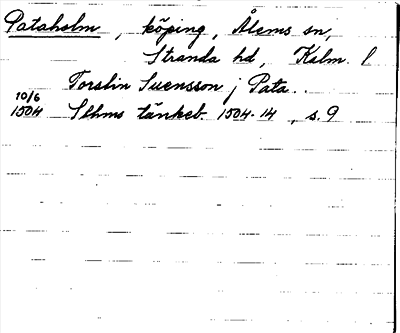 Pataholm, köping, Ålems sn,
Stranda hd, Kalm. l
Torstin Suensson j Pata..
10/6
1504 Sthms tänkeb. 1504-14, s. 9